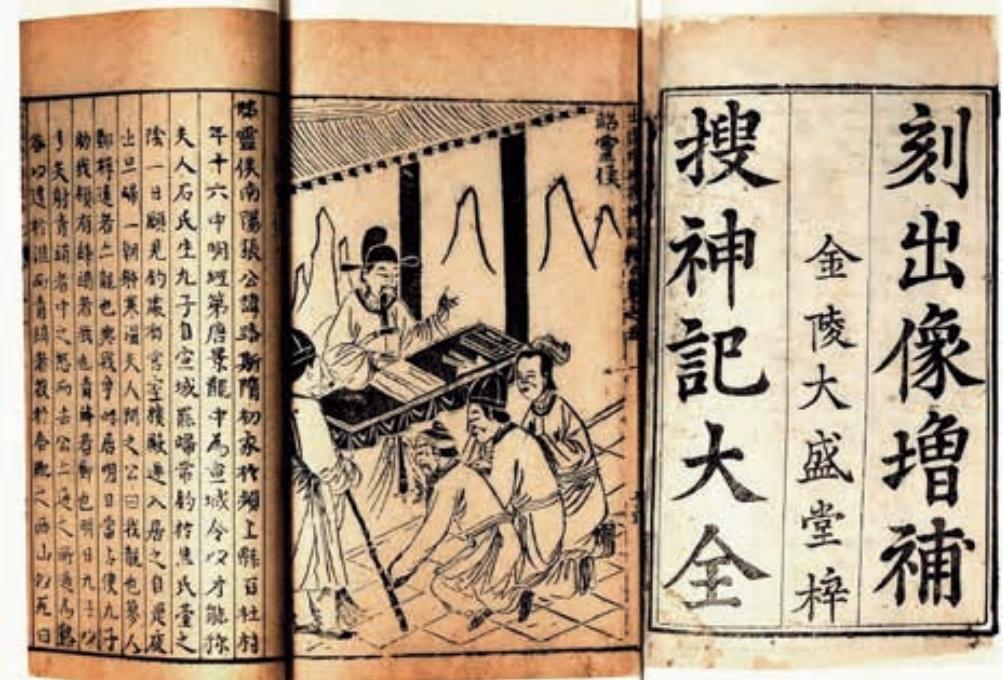 刻出像增補
金陵大盛堂梓
搜神記大全
靈侯
靈侯南陽張公諱路斯隋初家於潁上縣百社村
年十六中明經第唐景龍中為宣城令以才能称
夫人石氏生九子自宣城罷歸常釣於焦氏臺之
陰一日顧見釣處有宮室樓殿遂入居之自是夜
出旦歸一朝寒夫人問之公曰我龍也蓼人
鄭祥遠者龍也與我爭此居明日當占使九子
助我領有絳綃者我也青綃者鄭也明日九子以
弓矢射青綃者中之怒而去公逐之所過為谿
谷以達於淮而青綃者投於合肥之西山以死曰